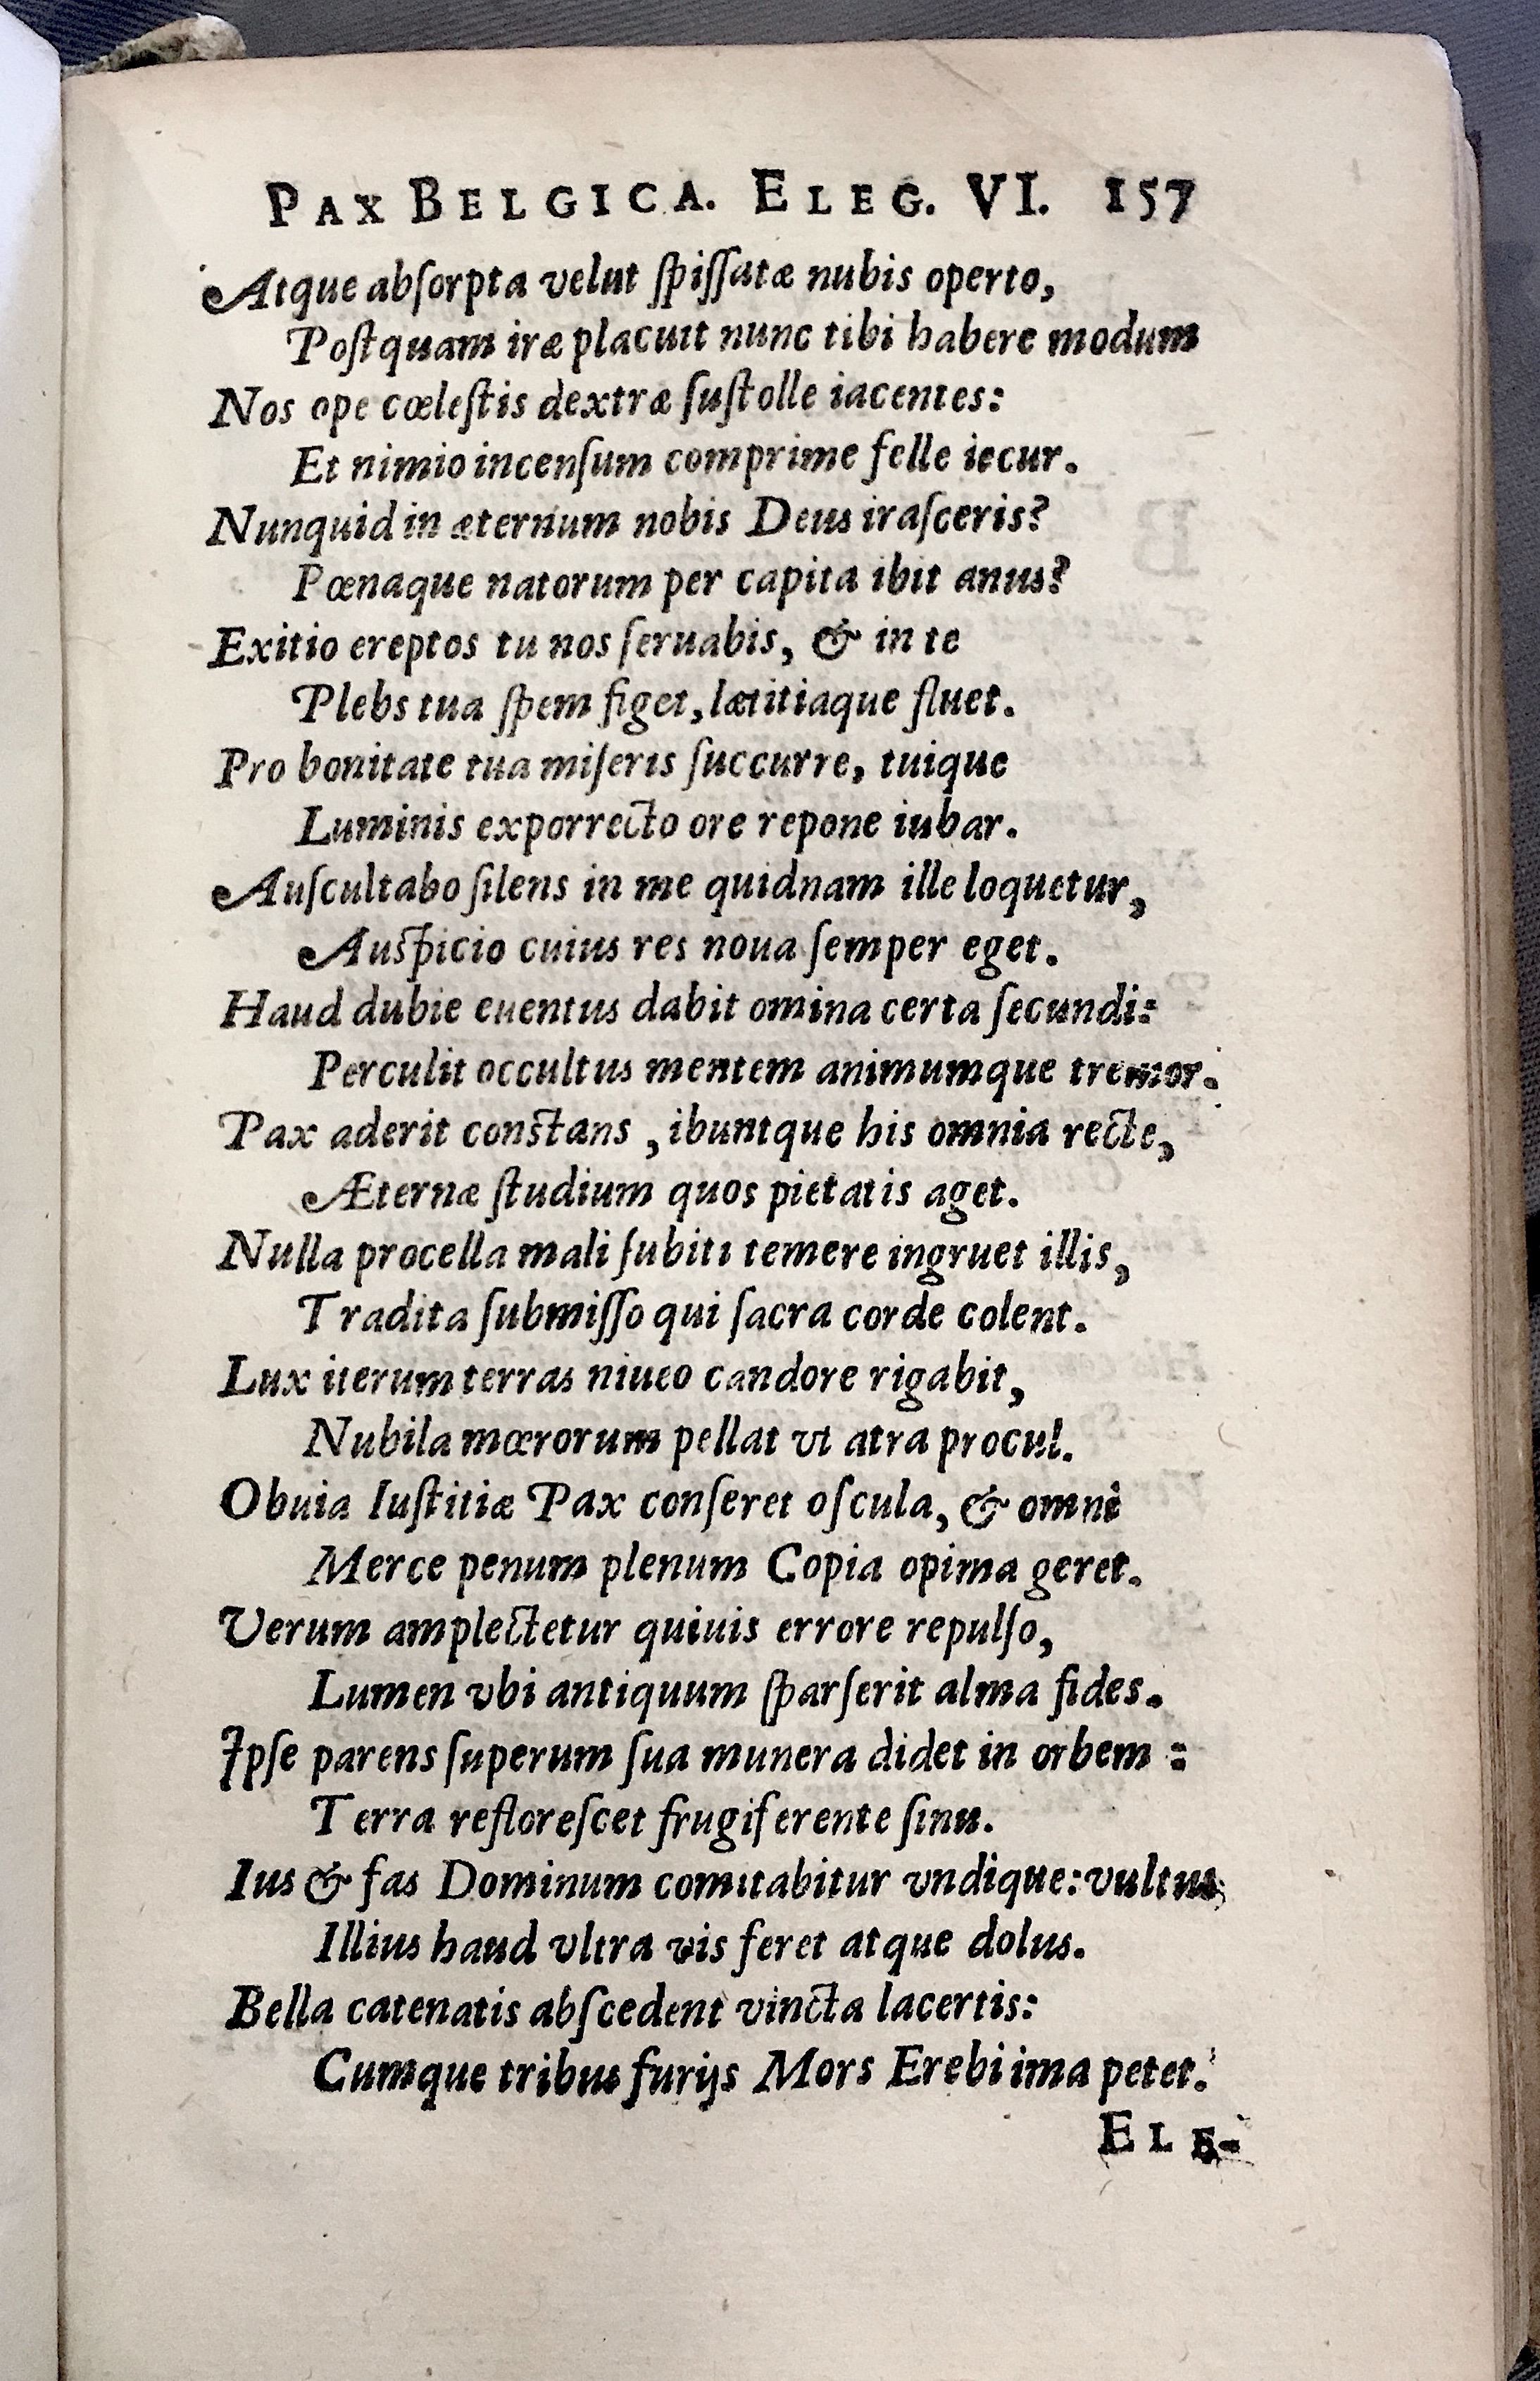 PAX BELGICA. ELEG. VI. 157
Atque abſorpta velut ſpiſſatæ nubis operto,
Poſtquam iræ placuit nunc tibi habere modum
Nos ope cœleſtis dextræ ſuſtolle iacentes:
Et nimio incenſum comprime felle iecur.
Nunquid in æternum nobis Deus iraſceris?
Pœnaque natorum per capita ibit anus?
Exitio ereptos tu nos ſeruabis, & in te
Plebs tua ſpem figet, lætitiaque fluet.
Pro bonitate tua miſeris ſuccurre, tuique
Luminis exporrecto ore repone iubar.
Auſcultabo ſilens in me quidnam ille loquetur,
Auspicio cuius res noua ſemper eget.
Haud dubie euentus dabit omina certa ſecundi:
Perculit occultus mentem animumque tremor.
Pax aderit constans, ibuntque his omnia recte,
Æternæ ſtudium quos pietatis aget.
Nulla procella mali ſubiti temere ingruet illis,
Tradita ſubmiſſo qui ſacra corde colent.
Lux iterum terras niueo candore rigabit,
Nubila mœrorum pellat vt atra procul.
Obuia Iuſtitiæ Pax conſeret oſcula, & omni
Merce penum plenum Copia opima geret.
Verum amplectetur quiuis errore repulſo,
Lumen vbi antiquum ſparſerit alma fides.
Ipſe parens ſuperum ſua munera didet in orbem:
Terra refloreſcet frugiferente ſinu.
Ius & fas Dominum comitabitur vndique: vultus
Illius haud vltra vis feret atque dolus.
Bella catenatis abſcedent vincta lacertis:
Cumque tribus furijs Mors Erebi ima petet.
ELE-